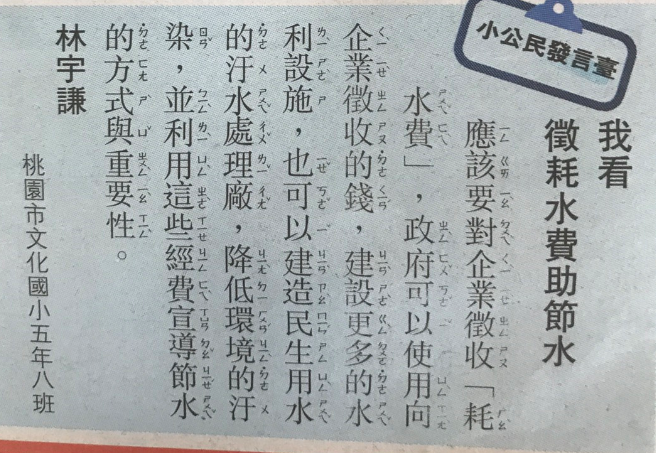 小公民發言臺
我看
徵耗水費助節水
應該要對企業徵收「耗
水費」，政府可以使用向
企業徵收的錢，建設更多的水
利設施，也可以建造民生用水
的汙水處理廠，降低環境的汙
染，並利用這些經費宣導節水
的方式與重要性。
林宇謙
桃園市文化國小五年八班